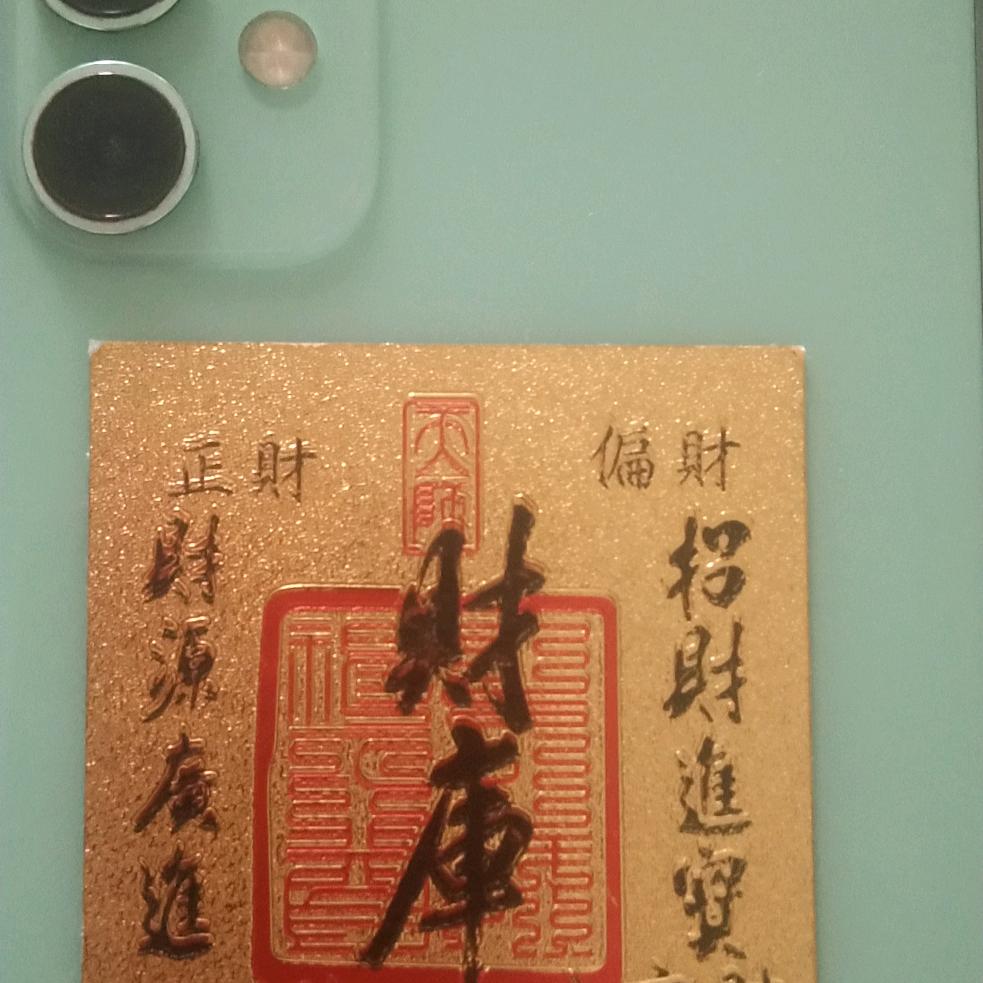 偏財
招財進寶
天師
財庫
正財
財源廣進